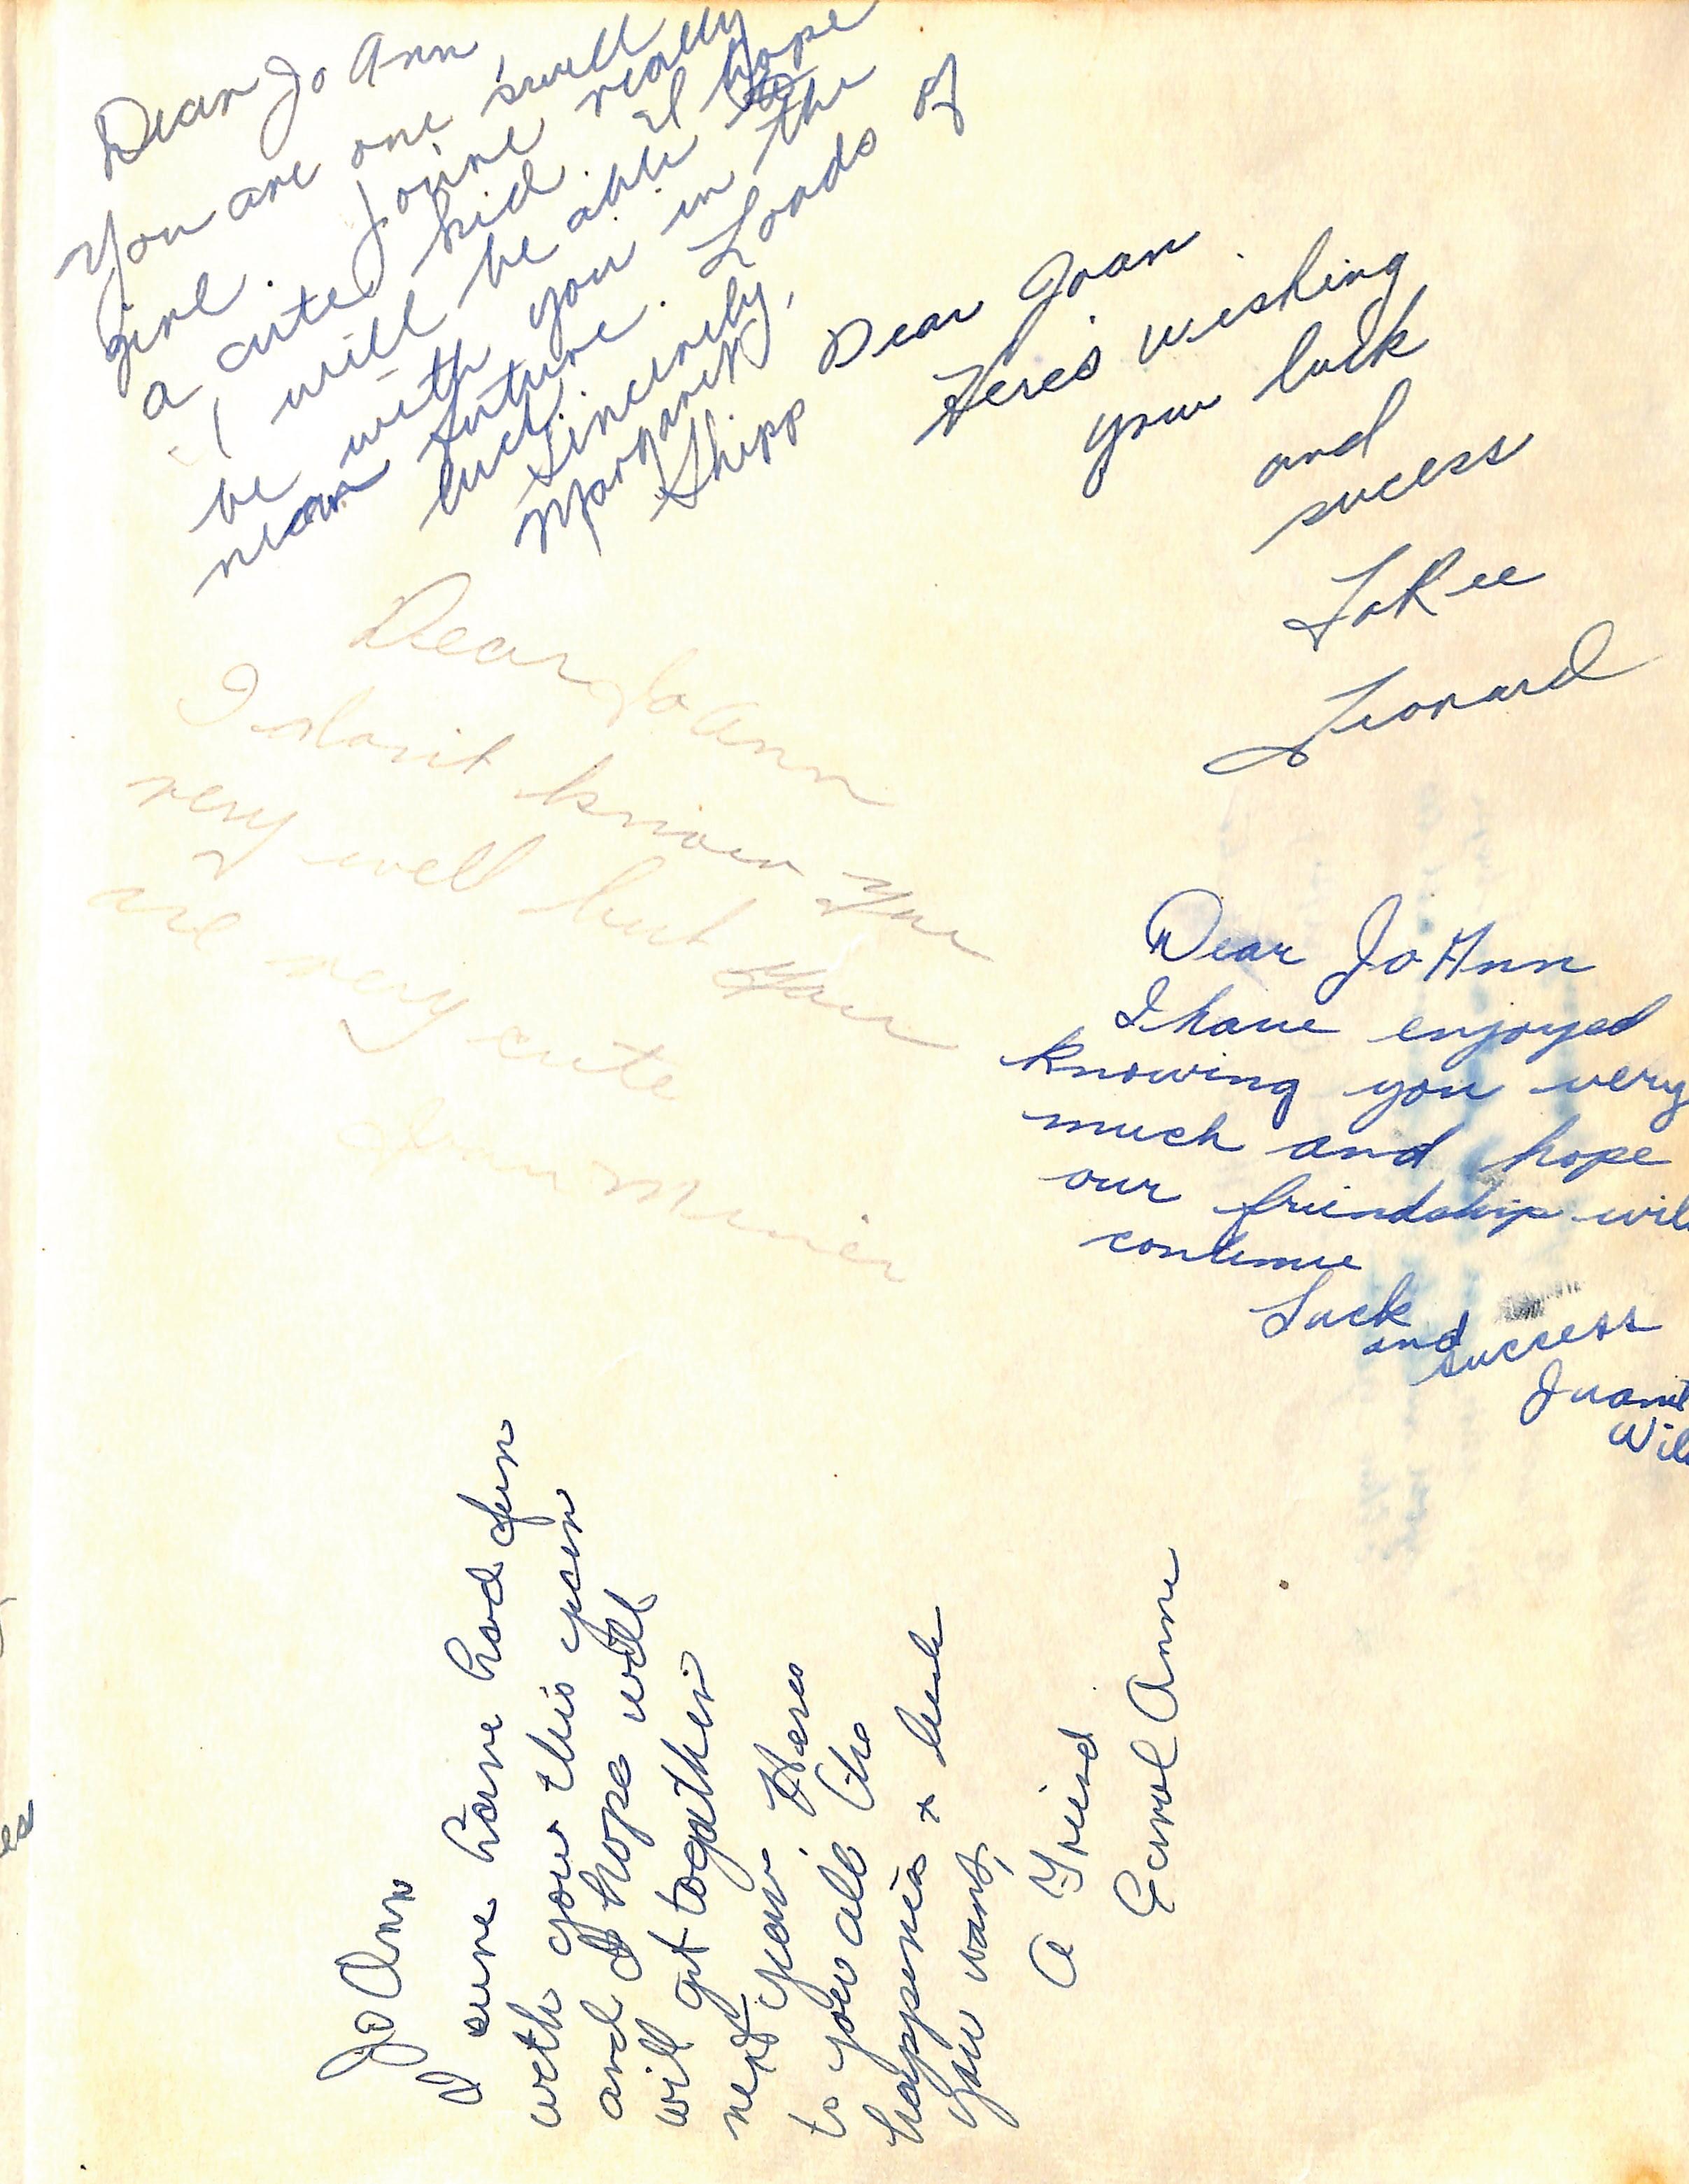 Dear Jo Ann,
You are one swell
girl. Youre really
a cute kid. I hope
I will be able to
be with you in the
near future. Loads of
luck.
Sincerely,
Margaret
Shipp
Dear Joan
Heres wishing
you luck
and
sucess
LaRee
Leonard
Dear Jo Ann
I don't know you
very well but you
are very cute
Dear Jo Ann
I have enjoyed
knowing you very
much and hope
our friendship will
continue
Luck
and success
Juanit
Wil
Jo Ann
I sure have had fun
with you this year
and I hope well
will get togather
next year. Heres
to you all the
happeness & luck
you want,
a Friend
Carol Anne
es